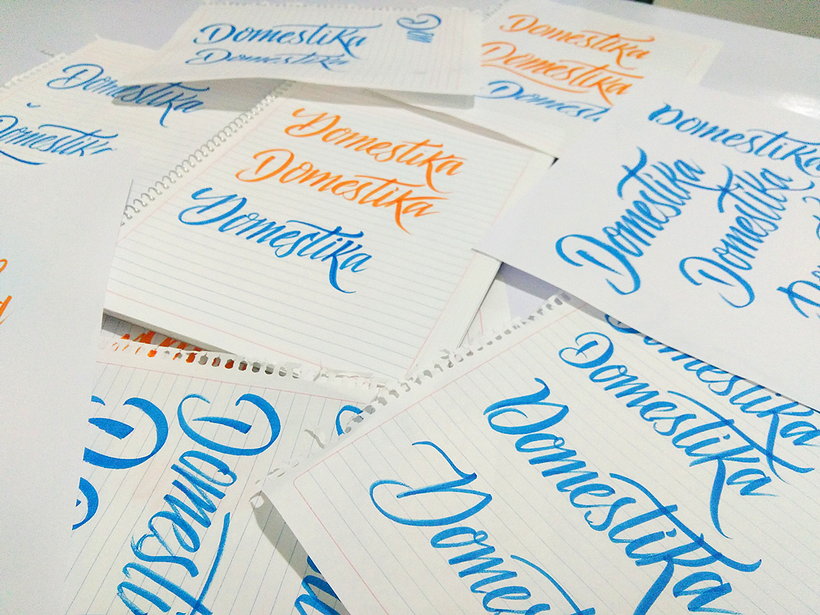 Domestika
Dom
Domestika
Domestika
Domestika
Domesti
Domestika
Domestik
Domestika
Domestika
Domestika
Domestika
Domestika
Domestika
Domesti
Domestika
Domestika
Domestika
Domest